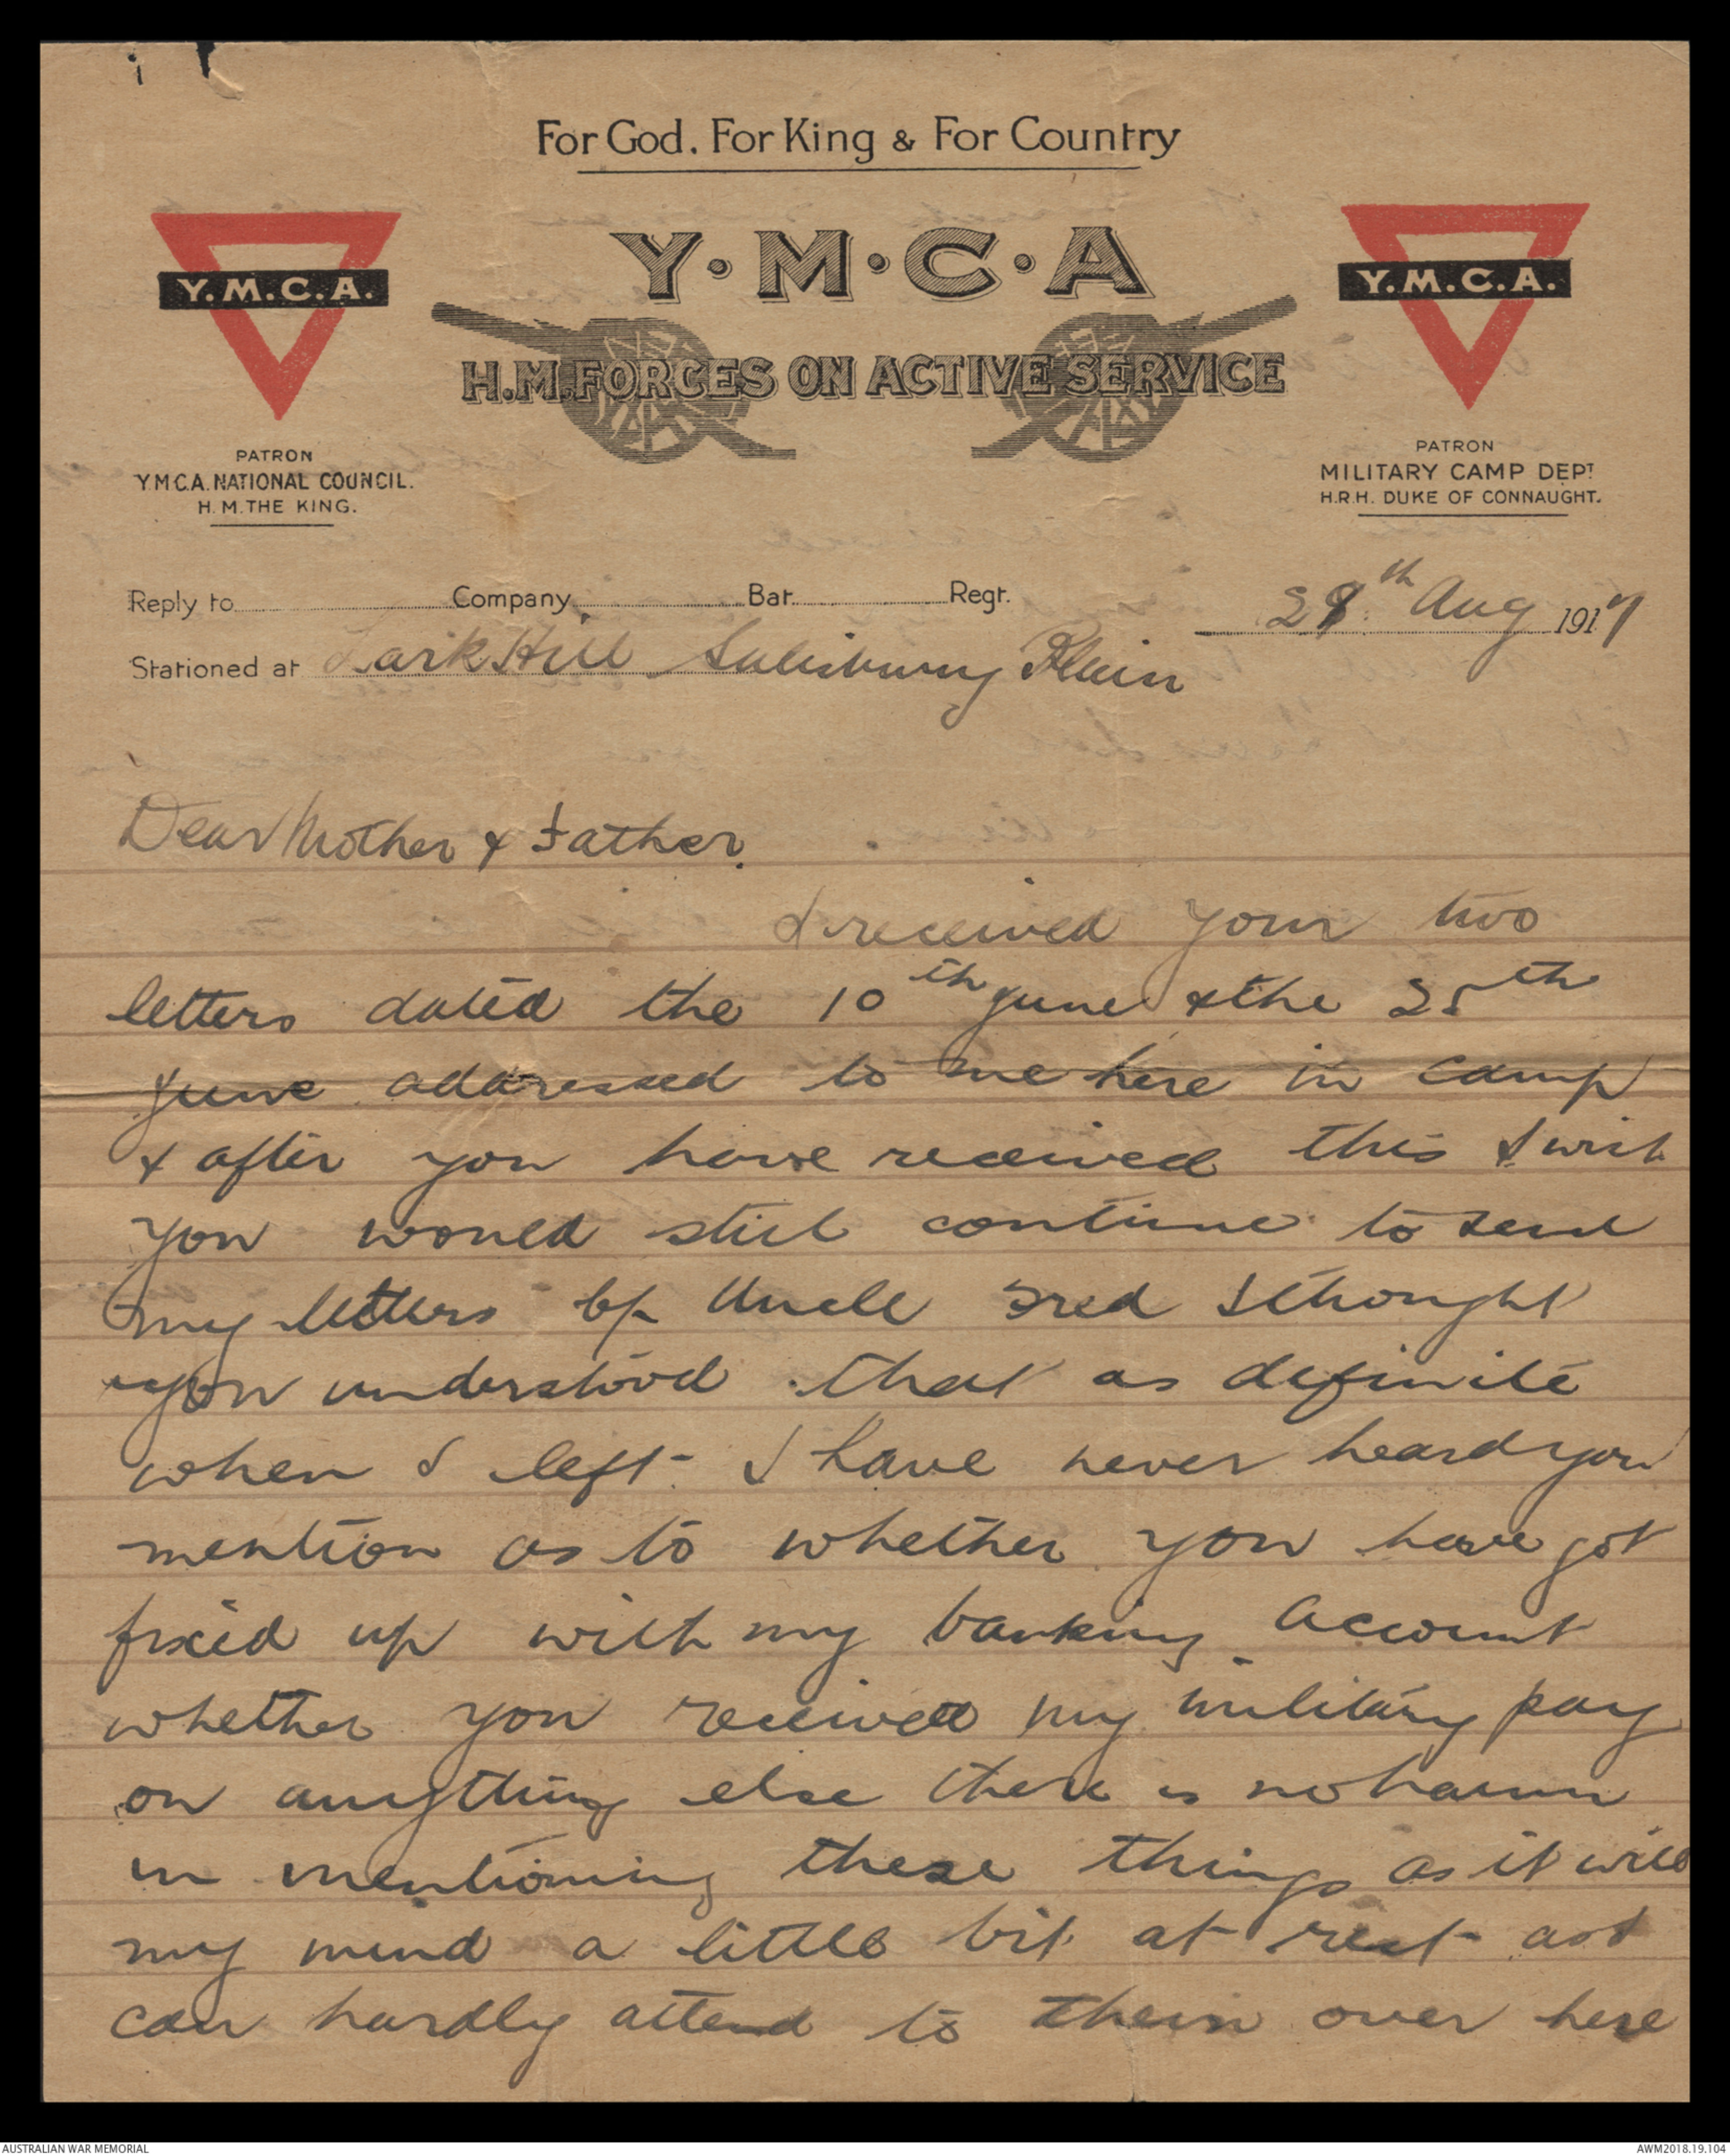 For God. For King & For Country
Y.M.C.A.
Y·M·C·A
Y.M.C.A.
H.M. FORCES ON ACTIVE SERVICE
PATRON
Y.M.C.A. NATIONAL COUNCIL.
H.M. THE KING.
PATRON
MILITARY CAMP DEPT
H.R.H. DUKE OF CONNAUGHT.
Reply to Company Bat. Regt. th Aug 1917
Stationed at Lark Hill Salisbury Plain
Dear Mother & Father.
I received your two
letters dated the 10th June & the 25th
June addressed to me here in camp
& after you have received this I wish
you would still continue to send
my letters Uncle Fred I thought
you understood that as definite
when I left. I have never heard you
mention as to whether you have got
fixed up with my banking account
whether you received my military pay
or anything else there is no harm
in mentioning these things as it will
my mind a little bit at rest as I
can hardly attend to them over here
AUSTRALIAN WAR MEMORIAL
AWM2018.19.104